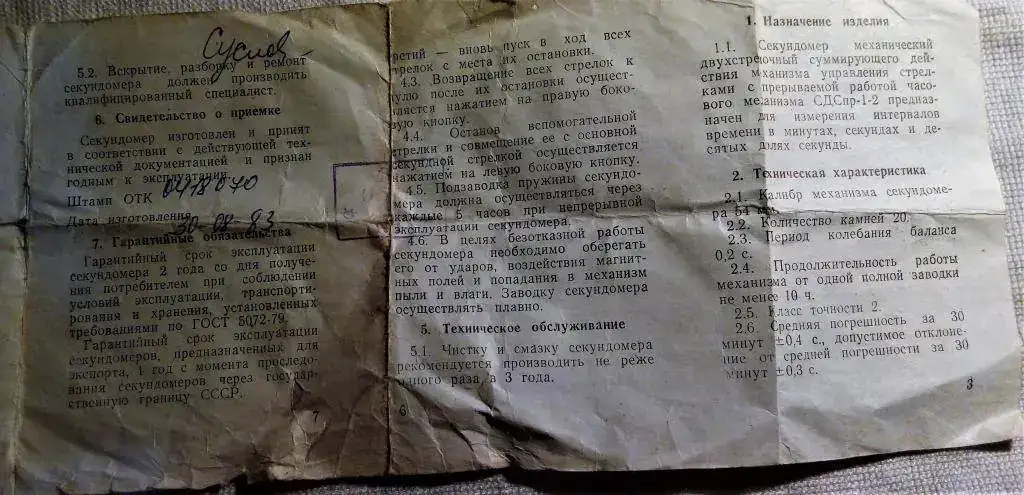 Суслов
5.2. Вскрытие, разборку и ремонт
секундомера должен производить
квалифицированный специалист.
6. Свидетельство о приемке
Секундомер изготовлен и принят
в соответствии с действующей тех-
нической документацией и признан
годным к эксплуатации.
Штамп ОТК 0418070
Дата изготовления 30-08-83
7. Гарантийные обязательства
Гарантийный срок эксплуатации
секундомера 2 года со дня получе-
ния потребителем при соблюдении
условий эксплуатации, транспорти-
рования и хранения, установленных
требованиями по ГОСТ 5072-79.
Гарантийный срок эксплуатации
секундомеров, предназначенных для
экспорта, 1 год с момента проследо-
вания секундомеров через государ-
ственную границу СССР.
7
третий — вновь пуск в ход всех
стрелок с места их остановки.
4.3. Возвращение всех стрелок к
нулю после их остановки осущест-
вляется нажатием на правую боко-
вую кнопку.
4.4. Останов вспомогательной
стрелки и совмещение ее с основной
секундной стрелкой осуществляется
нажатием на левую боковую кнопку.
4.5. Подзаводка пружины секундо-
мера должна осуществляться через
каждые 5 часов при непрерывной
эксплуатации секундомера.
4.6. В целях безотказной работы
секундомера необходимо оберегать
его от ударов, воздействия магнит-
ных полей и попадания в механизм
пыли и влаги. Заводку секундомера
осуществлять плавно.
5. Техническое обслуживание
5.1. Чистку и смазку секундомера
рекомендуется производить не реже
одного раза в 3 года.
6
1. Назначение изделия
1.1. Секундомер механический
двухстрелочный суммирующего дей-
ствия механизма управления стрел-
ками с прерываемой работой часо-
вого механизма СДСпр-1-2 предназ-
начен для измерения интервалов
времени в минутах, секундах и де-
сятых долях секунды.
2. Техническая характеристика
2.1. Калибр механизма секундоме-
ра 54 мм.
2.2. Количество камней 20.
2.3. Период колебания баланса
0,2 с.
2.4. Продолжительность работы
механизма от одной полной заводки
не менее 10 ч.
2.5. Класс точности 2.
2.6. Средняя погрешность за 30
минут ±0,4 с., допустимое отклоне-
ние от средней погрешности за 30
минут ±0,3 с.
3